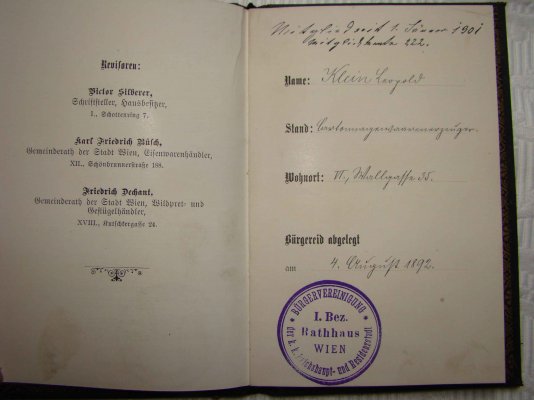 Revisoren:
Victor Silberer,
Schriftsteller, Hausbesitzer,
I., Schottenring 7.
Karl Friedrich Rüsch,
Gemeinderath der Stadt Wien, Eisenwarenhändler,
XII., Schönbrunnerstraße 188.
Friedrich Dechant,
Gemeinderath der Stadt Wien, Wildpret- und
Geflügelhändler,
XVIII., Kutschkergasse 24.
Mitglied seit 1. Jänner 1901
Mitgliedskarte 222.
Name: Klein Leopold
Stand: Cartonnagenwaarenerzeuger.
Wohnort: VI., Wallgasse 35.
Bürgereid abgelegt
am 4. August 1892.
* BÜRGERVEREINIGUNG *
I. Bez.
Rathhaus
WIEN
der k. k. Reichshaupt- und Residenzstadt